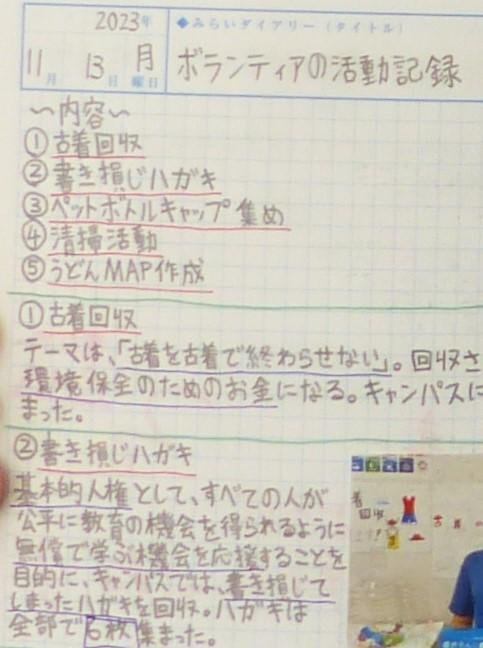 2023年
◆みらいダイアリー(タイトル)
11月 13日 月曜日
ボランティアの活動記録
〜内容〜
①古着回収
②書き損じハガキ
③ペットボトルキャップ集め
④清掃活動
⑤うどんMAP作成
①古着回収
テーマは、「古着を古着で終わらせない」。回収さ
環境保全のためのお金になる。キャンパスに
まった。
②書き損じハガキ
基本的人権として、すべての人が
公平に教育の機会を得られるように
無償で学ぶ機会を応援することを
目的に、キャンパスでは、書き損じて
しまったハガキを回収。ハガキは
全部で6枚集まった。
着
回収